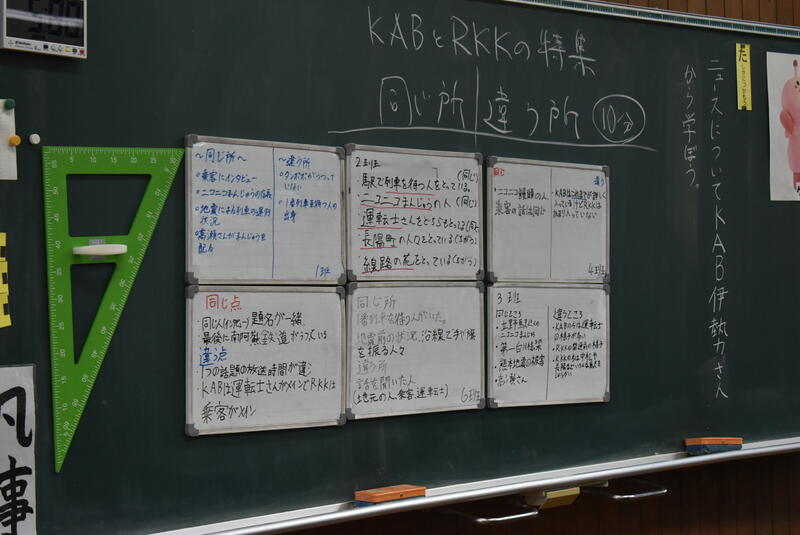 KABとRKKの特集
同じ所 違う所 10分
ニュースについてKAB伊勢力さん
から学ぼう。
〜同じ所〜
・乗客にインタビュー
・ニコニコまんじゅうの店長
・地震による列車の運行
状況
・高瀬さんがまんじゅうを
配る
〜違う所
・タンポポがうつって
いない
・1番列車を待つ人の
出身
1班
2班
・駅で列車を待つ人をとっている。(同じ)
・ニコニコマンじゅうの人(同じ)
・運転士さんをどちらもとってる(同じ)
・長陽町の人々をとっている(ちがう)
・線路の花をとっている(ちがう)
同じ
・ニコニコ饅頭の人、
乗客の話は同じ
違う
4班
同じ点
・題名が一緒。
・最後に南阿蘇鉄道がうつっている
違う点
・1つの話題の放送時間が違う
・KABは運転士さんがメインでRKKは
乗客がメイン
同じ所
1番列車を待つ人がいた。
地震前の状況、沿線で手や旗
を振る人々
違う所
話を聞いた人
(地元の人、乗客、運転士)
6班
3班
同じところ
・ニコニコまんじゅう
・第一白川橋梁
・熊本地震の被害
違うところ
・KABの方は運転士
の様子が多い
凡事